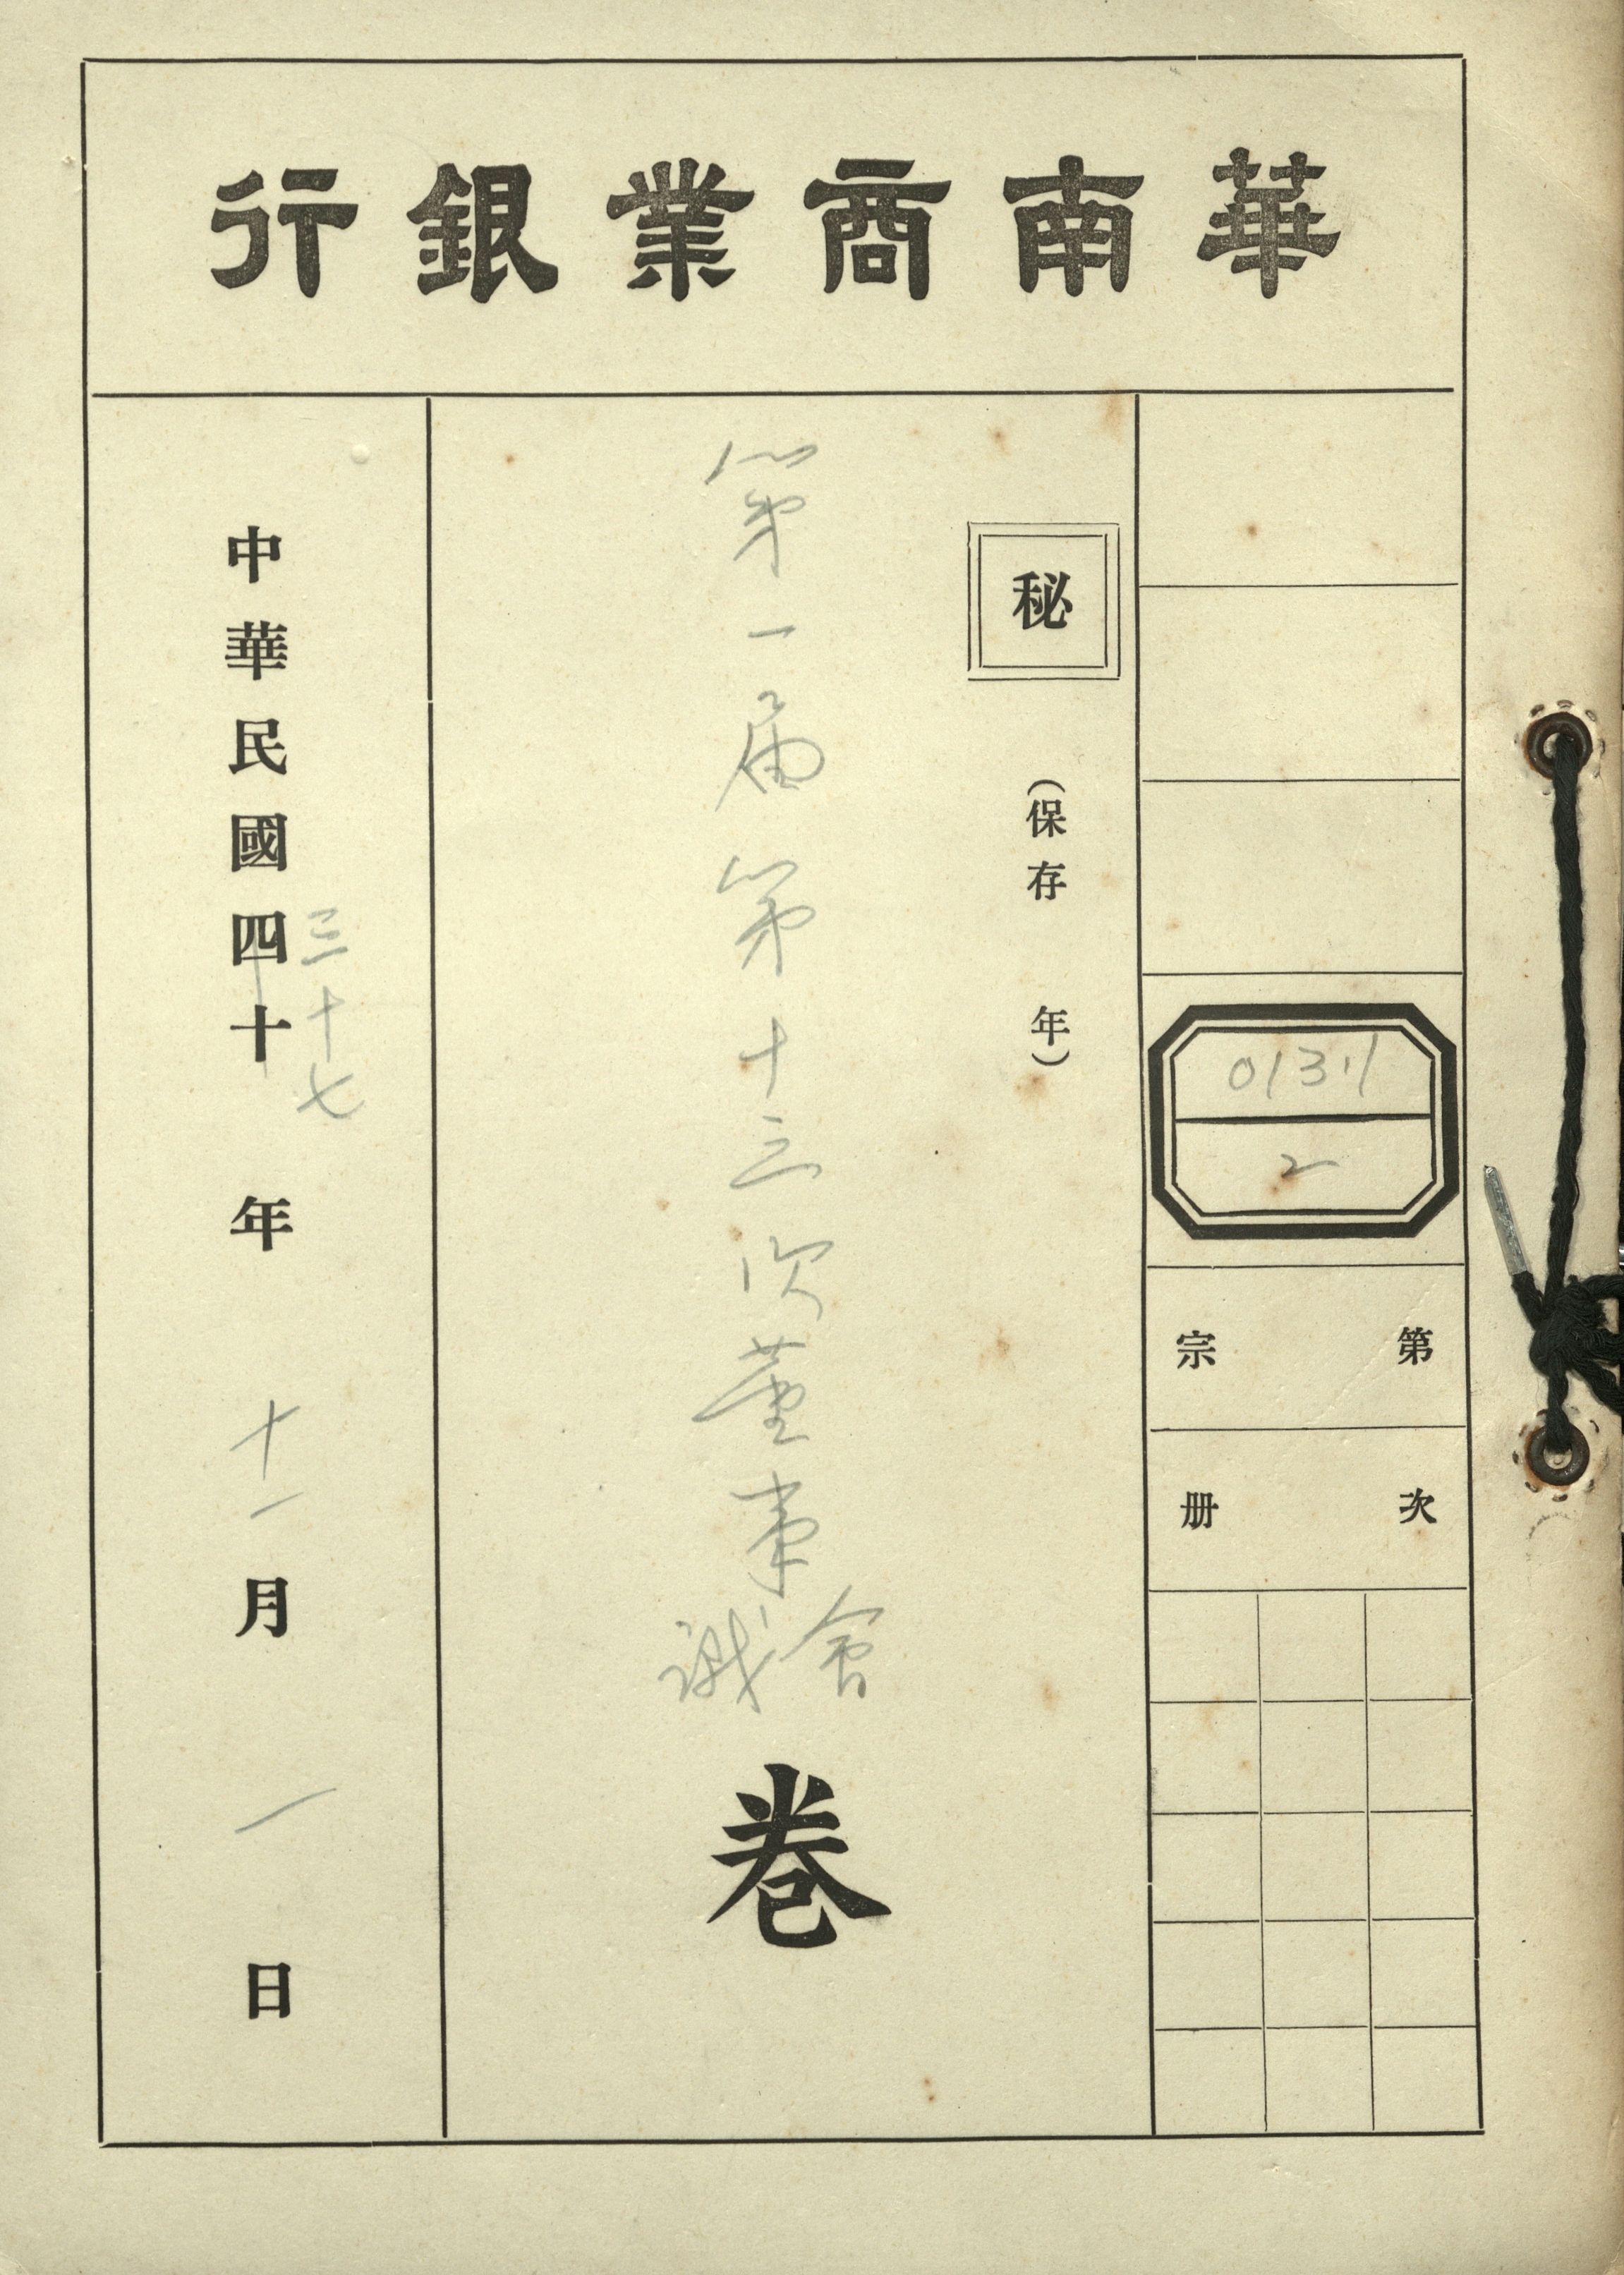 華南商業銀行
0131.1
2
第 宗
次 册
秘
(保存 年)
第一届第十三次董事會議
卷
中華民國四十年十一月一日
三十七